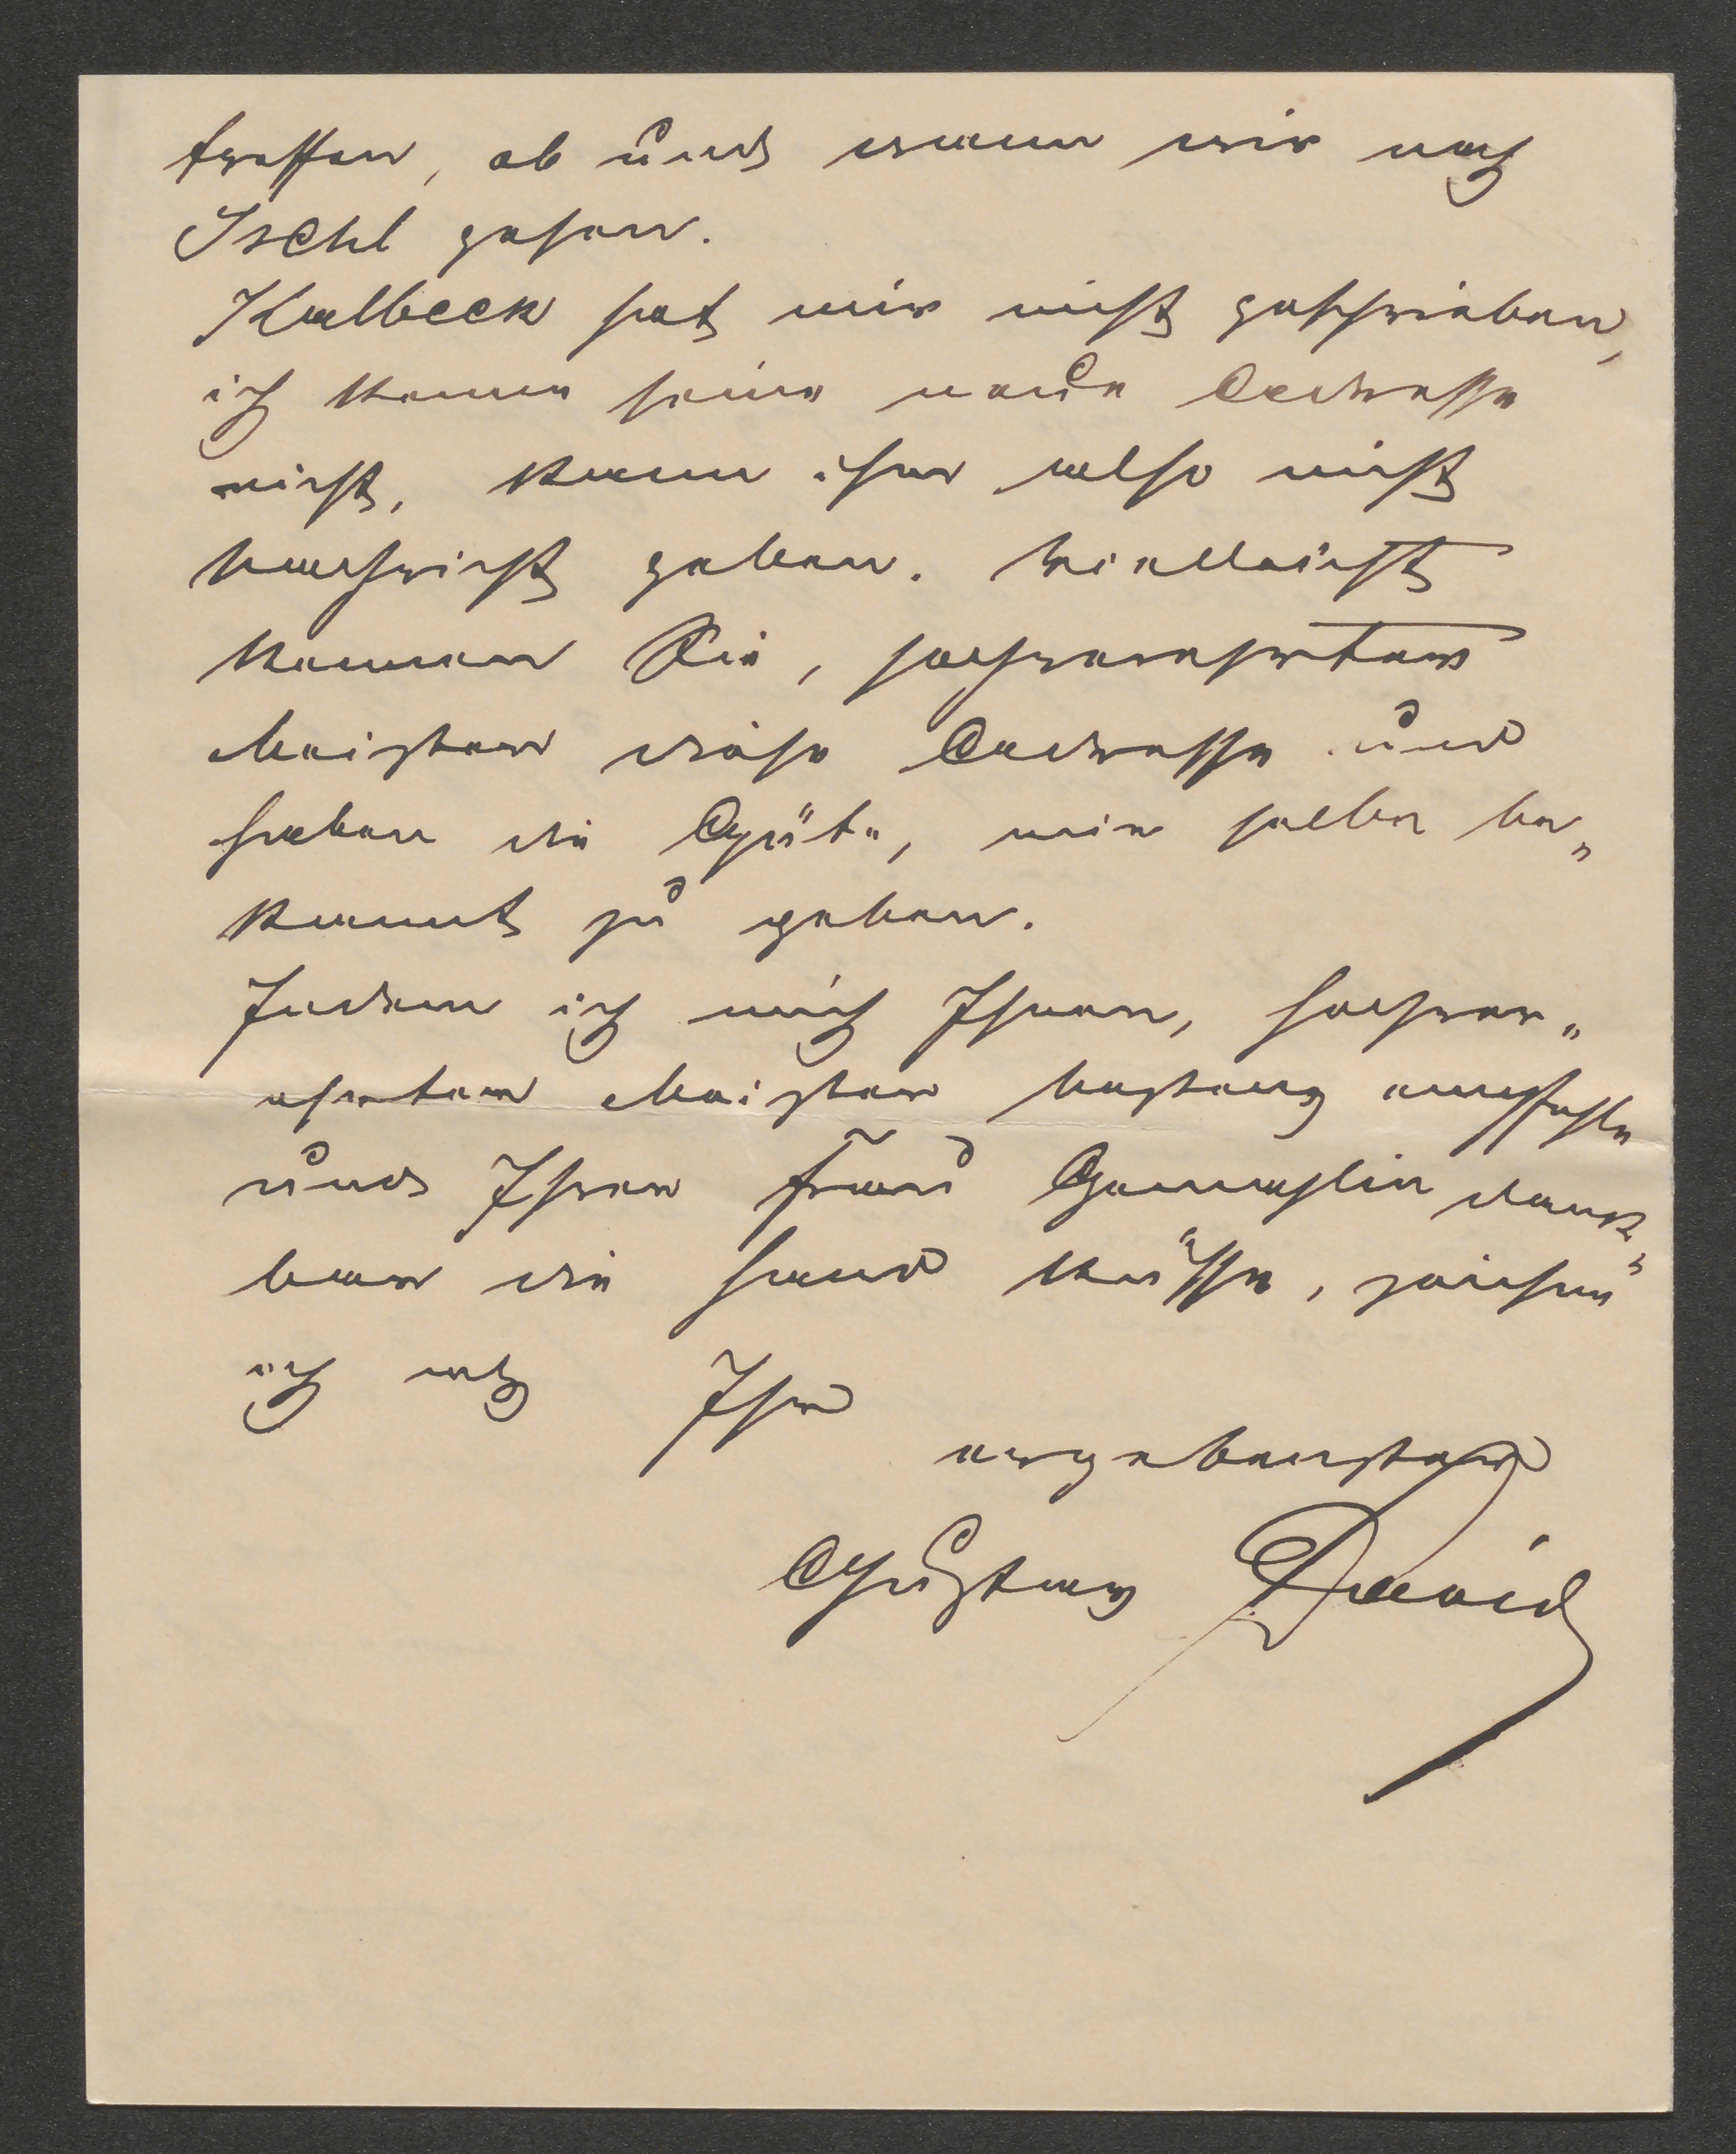 treffen, ob und wann wir nach
Ischl gehen.
Kalbeck hat mir nicht geschrieben,
ich kenne seine neue Adresse
nicht, kann ihm also nicht
Nachricht geben. Vielleicht
kennen Sie, hochverehrter
Meister diese Adresse und
haben die Güte, mir selbe be„
kannt zu geben.
Indem ich mich Ihnen, hochver„
ehrter Meister bestens empfehle
und Ihrer Frau Gemahlin dank„
bar die Hand küsse, zeichne
ich als Ihr
ergebenster
Gustav David